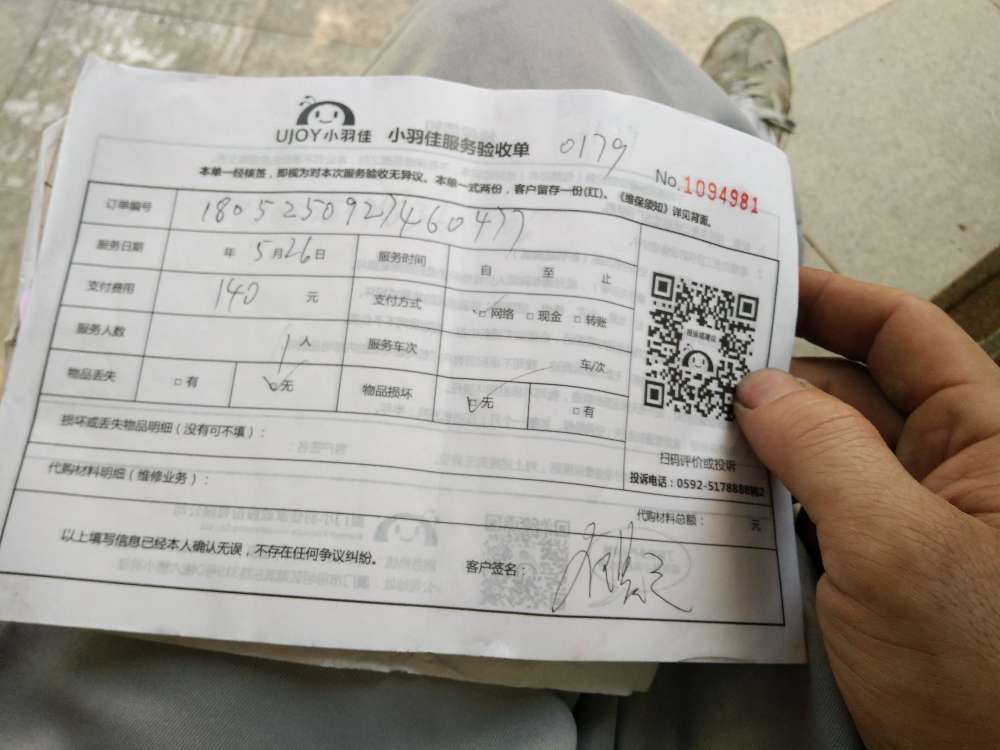 UJOY小羽佳 小羽佳服务验收单 01179
No.1094981
本单一经核签,即视为对本次服务验收无异议。本单一式两份,客户留存一份(红)、《维保须知》详见背面。
订单编号 1805250927460477
服务日期 年 5月26日 服务时间 自 至 止
支付费用 140 元 支付方式 □网络 □现金 □转账
服务人数 1人 服务车次 车/次
物品丢失 □有 □无 物品损坏 □无 □有
损坏或丢失物品明细(没有可不填):
扫码评价或投诉
投诉电话:0592-5178888转2
代购材料明细(维修业务):
代购材料总额: 元
以上填写信息已经本人确认无误,不存在任何争议纠纷。 客户签名: